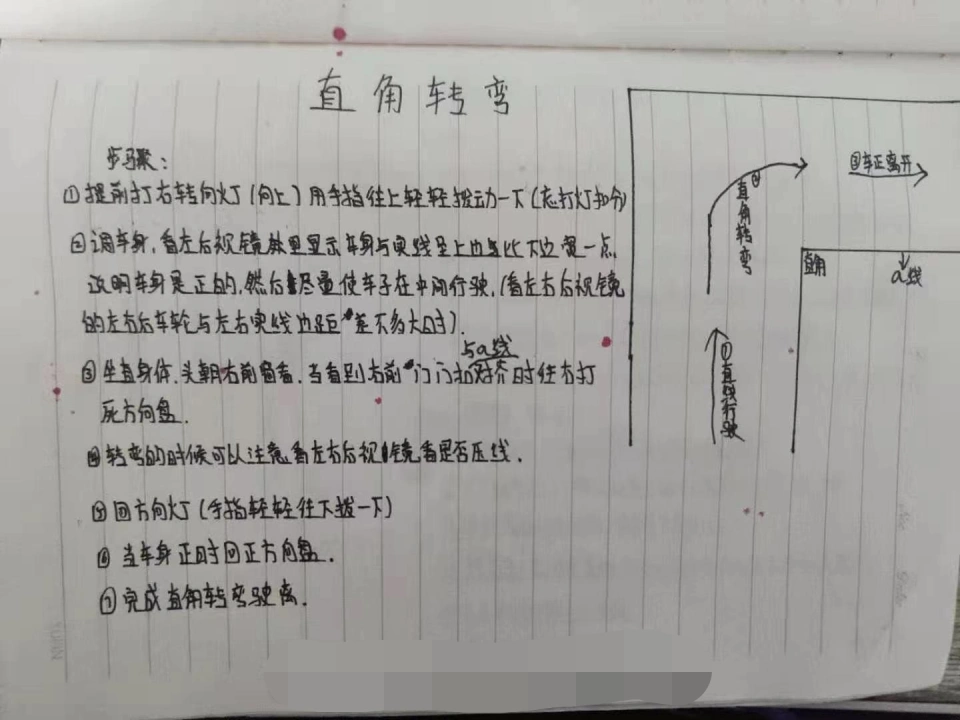 直角转弯
步骤：
①提前打右转向灯（向上）用手指往上轻轻拨动一下（忘打灯扣分）
②调车身，看左后视镜里显示车身与实线呈上边与比下边宽一点，
说明车身是正的，然后尽量使车子在中间行驶，（看左右后视镜
的左右后车轮与左右实线边距差不多大时）．
③坐直身体，头朝右前窗看，当看到右前门门扣与a线对齐时往右打
死方向盘．
④转弯的时候可以注意看左右后视镜看是否压线．
⑤回方向灯（手指轻轻往下拨一下）
⑥当车身正时回正方向盘．
⑦完成直角转弯驶离．
③车正离开
②直角转弯
直角
a线
①直线行驶